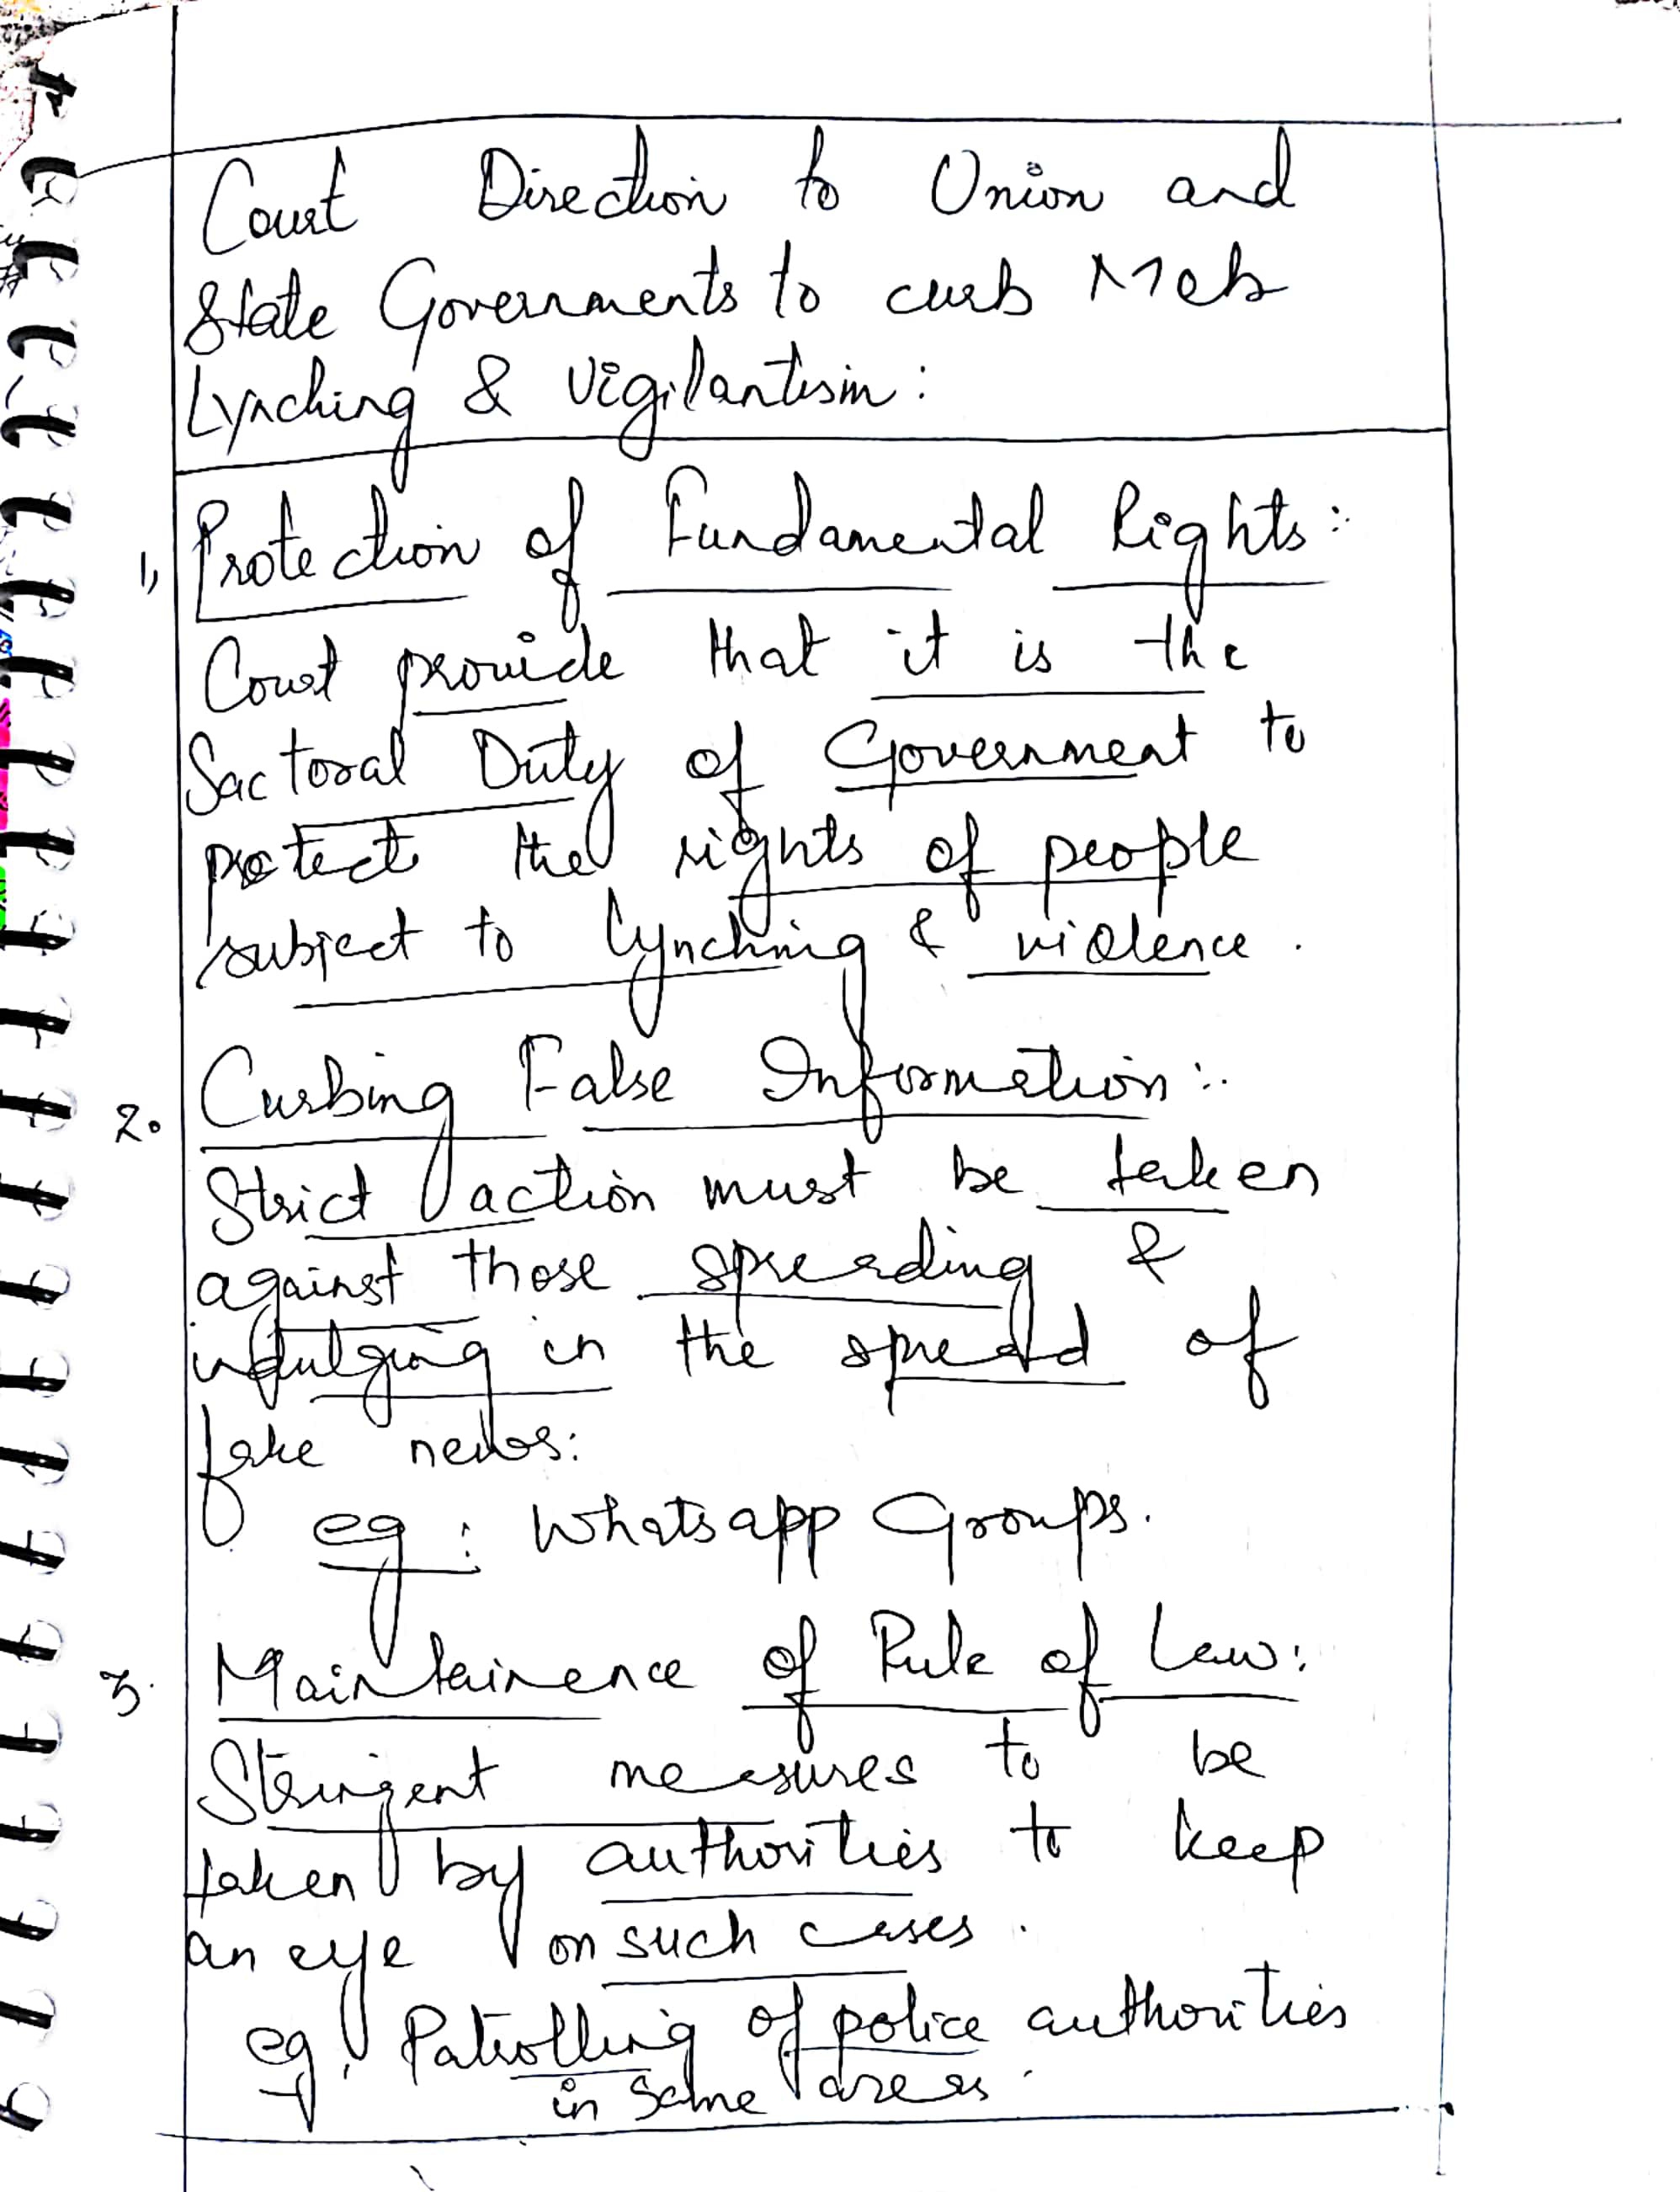 Court Direction to Union and
State Governments to curb Mob
Lynching & Vigilantism:
1, Protection of Fundamental Rights:
Court provide that it is the
Sactoral Duty of Government to
protect the rights of people
subject to lynching & violence.
2. Curbing False Information:
Strict action must be taken
against those spreading &
indulging in the spread of
fake news:
eg: Whatsapp Groups.
3. Maintainence of Rule of Law:
Stringent measures to be
taken by authorities to keep
an eye on such cases.
eg: Patrolling of police authorities
in same areas.